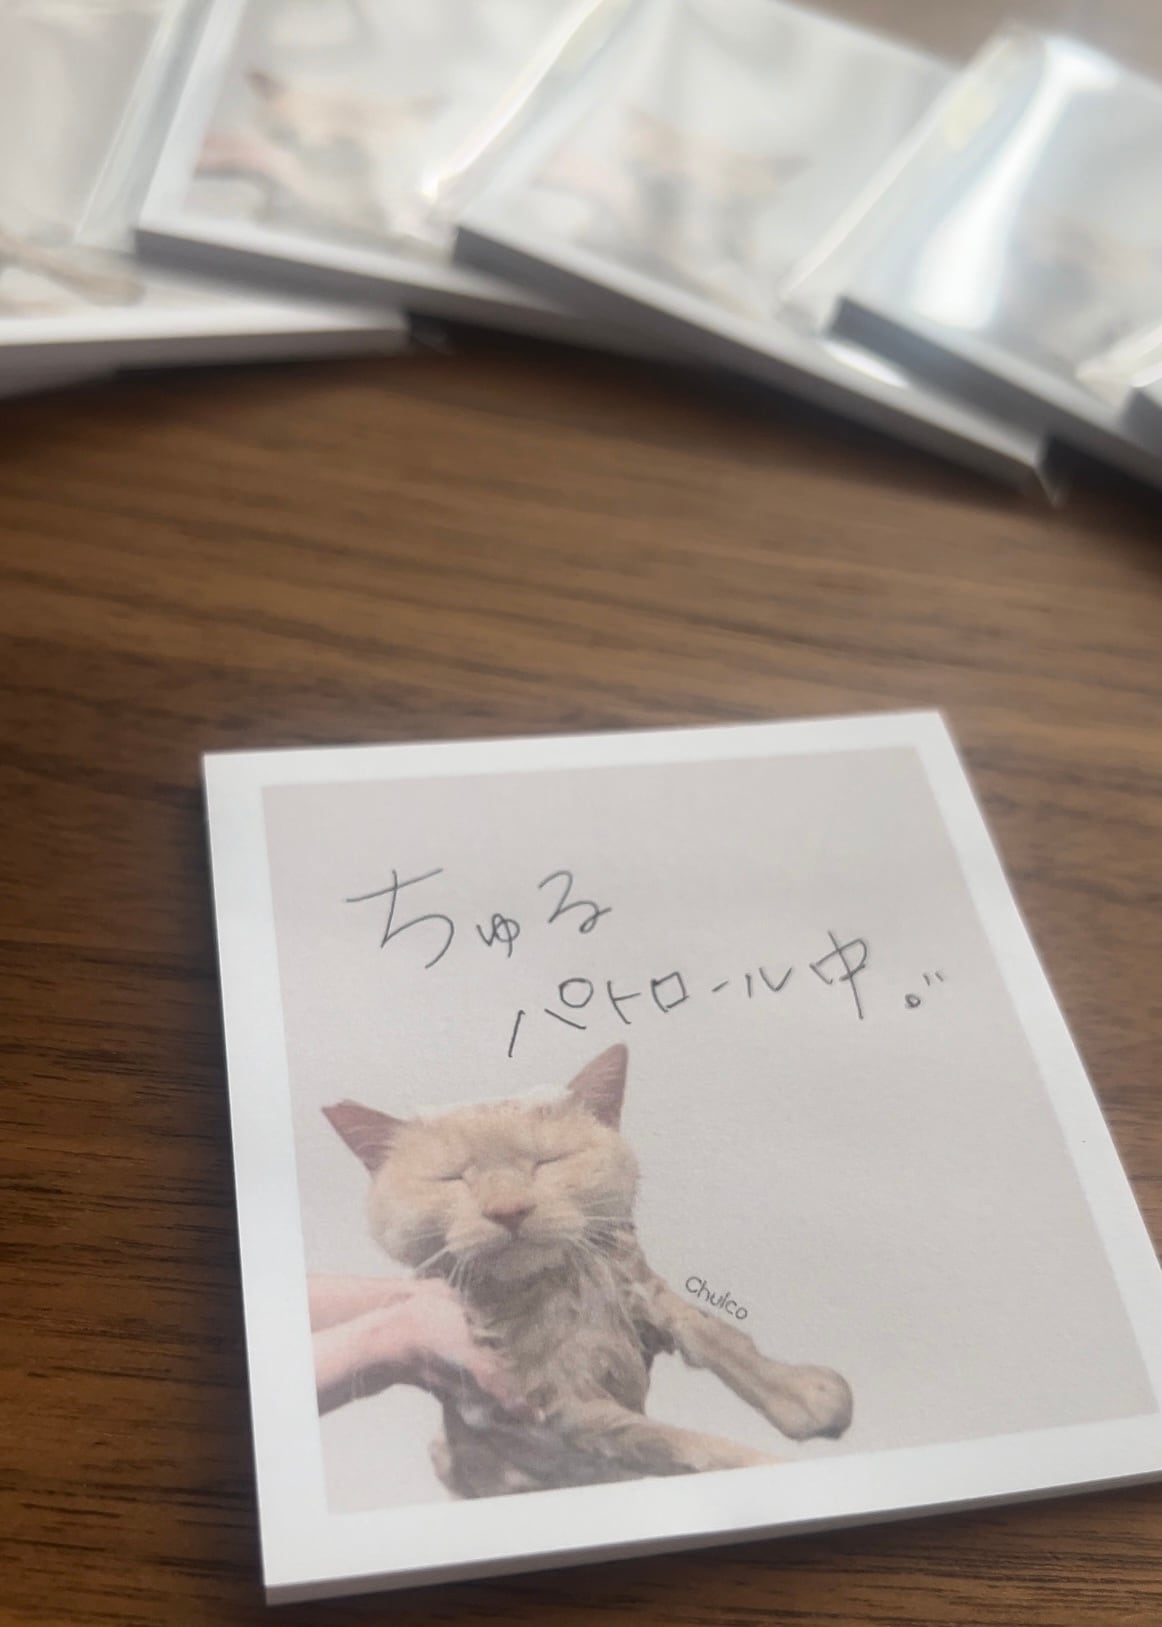 ちゅる
パトロール中。"
Chulco